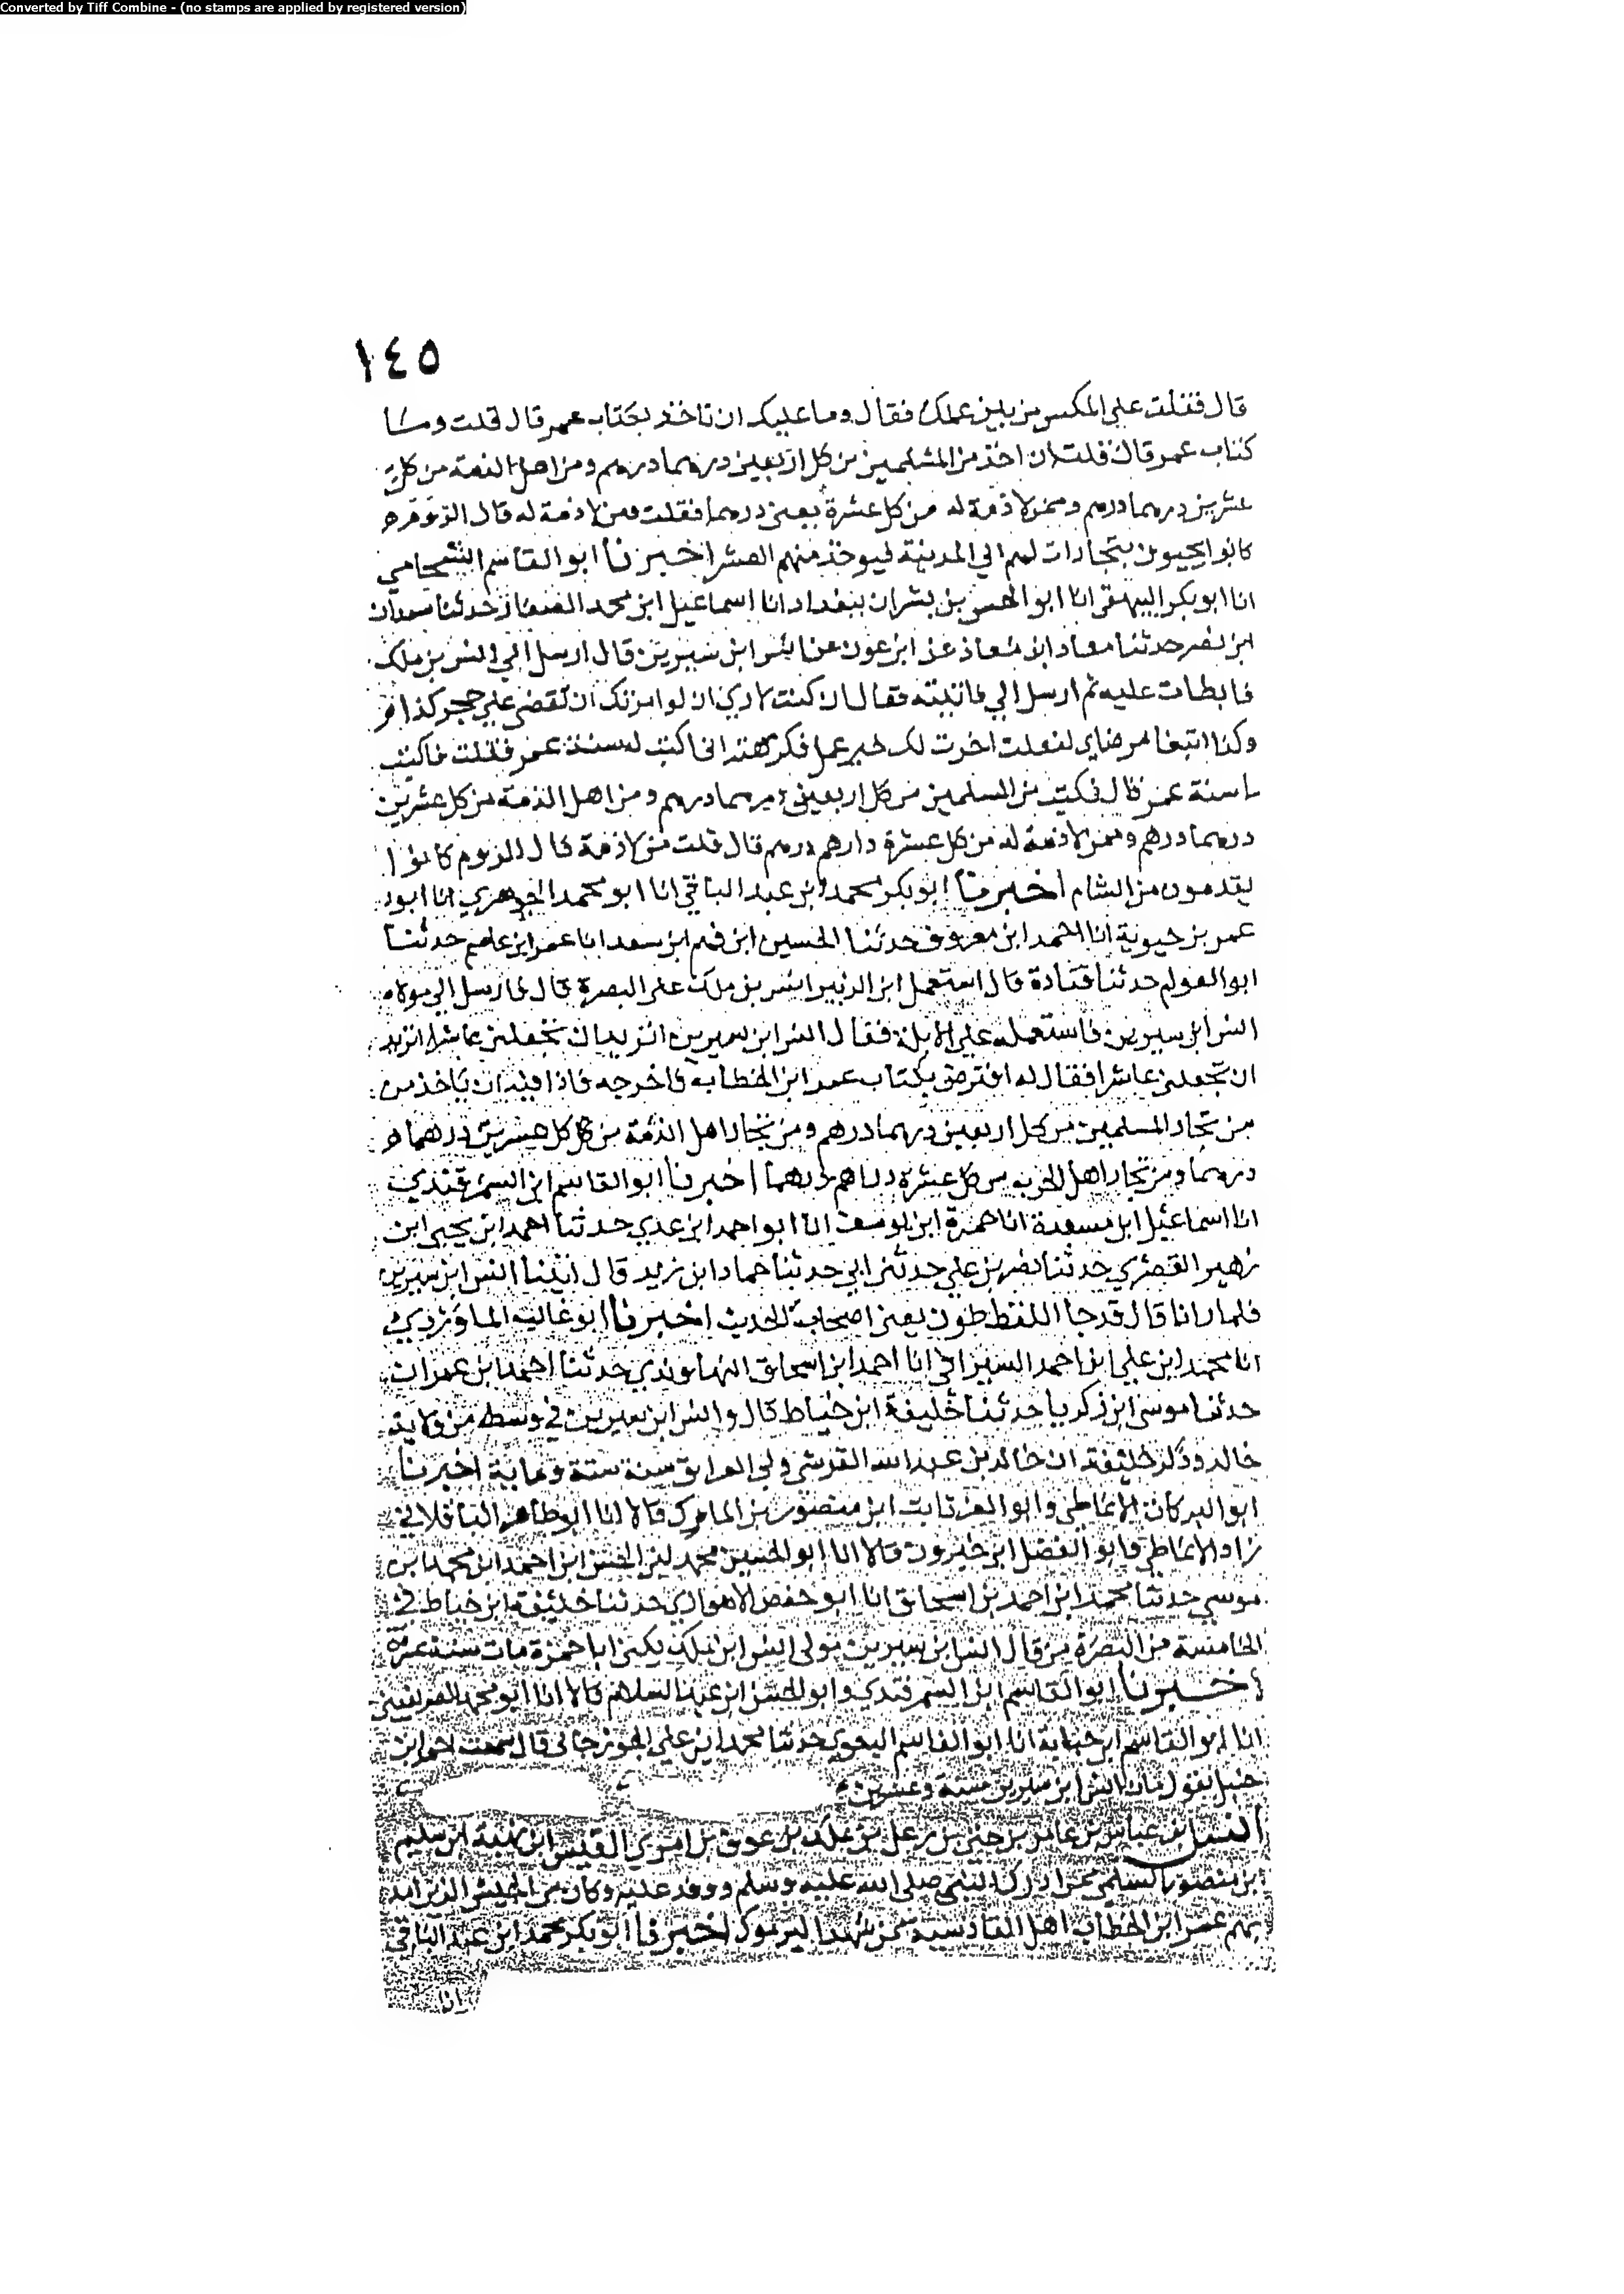 Converted by Tiff Combine - (no stamps are applied by registered version)
١٤٥
قال فقلت علي المكس من بين عملك فقال وما عليك ان تاخذ بكتاب عمر قال قلت وما
كتاب عمر قال قلت ان اخذ من المسلمين من كل اربعين درهما درهم ومن اهل الذمة من كل
عشرين درهما درهم وممن لا ذمة له من كل عشرة يعني درهما فقلت ومن لا ذمة له قال الروم
كانوا يجيون بتجارات لهم الي المدينة فيوخذ منهم العشر اخبرنا ابو القاسم الشحامي
انا ابو بكر البيهقي انا ابو الحسن بن بشران ببغداد انا اسماعيل ابن محمد الصفار حدثنا سعدان
ابن نصر حدثنا معاذ ابن معاذ عن ابن عون عن انس ابن سيرين قال ارسل الي انس بن ملك
فابطات عليه ثم ارسل الي فاتيته فقال ان كنت لاري ان لو امرتك ان تقضي علي حجر كذا
وكذا ابتغا مرضاي لفعلت اخرت لك خير عمل فكرهته اني اكتب لك سنة عمر فقلت فاكتب
سنة عمر قال فكتب من المسلمين من كل اربعين درهما درهم ومن اهل الذمة من كل عشرين
درهما درهم وممن لا ذمة له من كل عشرة دارهم درهم قال قلت من لا ذمة قال الروم كانوا
يقدمون من الشام اخبرنا ابو بكر محمد ابن عبد الباقي انا ابو محمد الجوهري انا ابو
عمر بن حيوية انا احمد ابن معروف حدثنا الحسين ابن فهم ابن سعد انا عمر ابن عاصم حدثنا
ابو العوام حدثنا قتادة قال استعمل ابن الزبير انس بن ملك علي البصرة قال فارسل الي مولاه
انس ابن سيرين فاستعمله علي الابلة فقال انس ابن سيرين اتريد ان تجعلني عاشرا اتريد
ان تجعلني عاشرا فقال له اما ترضي بكتاب عمر ابن الخطاب فاخرجه فاذا فيه ان ياخذ من
من تجار المسلمين من كل اربعين درهما درهم ومن تجار اهل الذمة من كل عشرين درهما
درهما ومن تجار اهل الحرب من كل عشرة دراهم درهما اخبرنا ابو القاسم ابن السمرقندي
انا اسماعيل ابن مسعدة انا حمزة ابن يوسف انا ابو احمد ابن عدي حدثنا احمد ابن يحيي ابن
زهير القصري حدثنا نصر بن علي حدثني ابي حدثنا حماد ابن زيد قال اتينا انس ابن سيرين
فلما رانا قال قد جا اللفطاطون يعني اصحاب الحديث اخبرنا ابو غالب الماوردي
انا محمد ابن علي ابن احمد السيرافي انا احمد ابن اسحاق النهاوندي حدثنا احمد ابن عمران
حدثنا موسي ابن زكريا حدثنا خليفة ابن خياط قال وانس ابن سيرين في وسط من ولاية
خالد وذكر خليفة ان خالد بن عبد الله القسري ولي العراق سنة ستة وماية اخبرنا
ابو البركات الانماطي وابو العز ثابت ابن منصور بن المبارك قالا انا ابو طاهر الباقلاني
زاد الانماطي وابو الفضل ابن خيرون قالا انا ابو الحسين محمد ابن الحسن ابن احمد ابن محمد ابن
موسي حدثنا محمد ابن احمد بن اسحاق انا ابو حفص الاهوازي حدثنا خليفة ابن خياط في
الخامسة من البصرة من قال انس ابن سيرين مولي انس ابن ملك يكني ابا حمزة مات سنة عشرة
اخبرنا ابو القاسم ابن السمرقندي وابو الحسن ابن عبد السلام قالا انا ابو محمد الصريفيني
انا ابو القاسم ابن حبابة انا ابو القاسم البغوي حدثنا محمد ابن علي الجوزجاني قال سمعت احمد ابن
حنبل يقول مات انس ابن سيرين سنة وعشرين
انس ابن عباس بن عامر بن حيي بن رعل بن ملك بن عوف بن امري القيس ابن بهثة ابن سليم
ابن منصور السلمي ممن ادرك النبي صلي الله عليه وسلم ووفد عليه وكان من الجيش الذين امد
بهم عمر ابن الخطاب اهل القادسية ممن شهد اليرموك اخبرنا ابو بكر محمد ابن عبد الباقي
انا